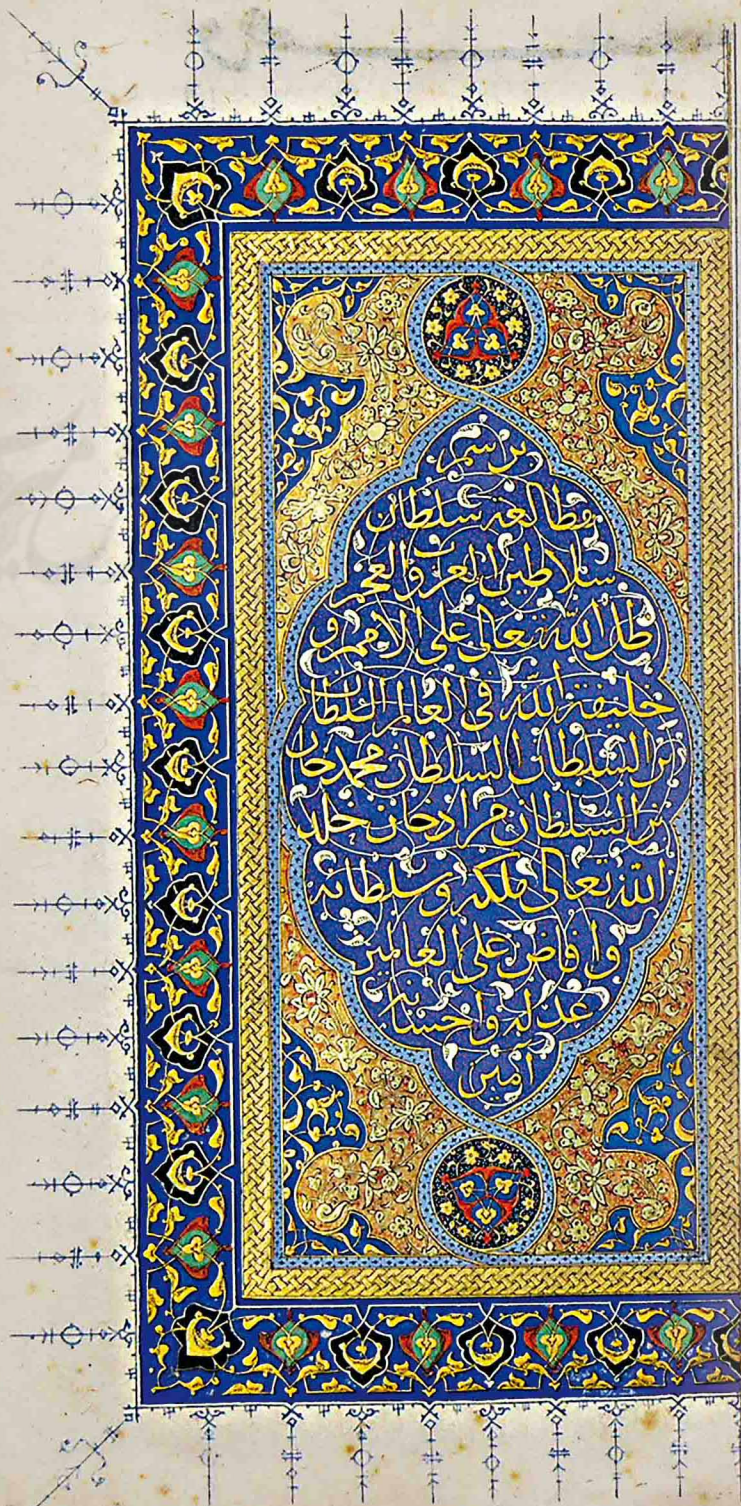 برسم
مطالعة سلطان
سلاطين العرب والعجم
ظل الله تعالى على الامم و
خليفة الله في العالم السلطان
ابن السلطان السلطان محمد خان
بن السلطان مراد خان خلد
الله تعالى ملكه وسلطانه
وافاض على العالمين
عدله واحسانه
آمين